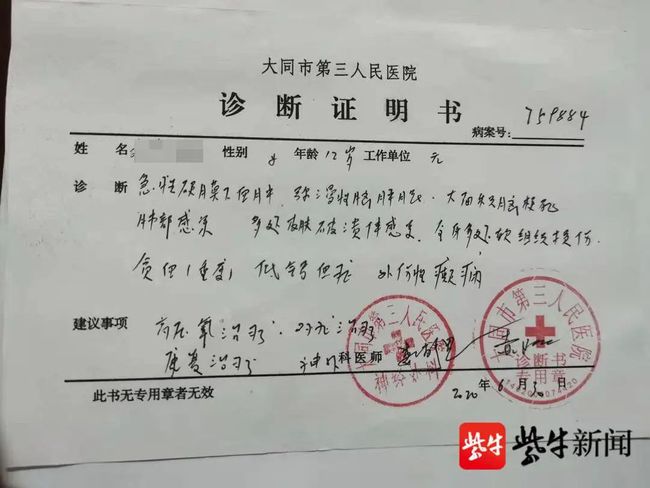 大同市第三人民医院
诊断证明书
病案号: 759884
姓名 性别 年龄 12岁 工作单位 无
诊断 急性硬膜下血肿 弥漫性脑肿胀 大面积脑梗死
肺部感染 多处皮肤破溃伴感染 全身多处软组织损伤
贫血(重度) 低蛋白血症 外伤性癫痫
建议事项 高压氧治疗、对症治疗
康复治疗 神外科医师
2020年6月30日
此书无专用章者无效
大同市第三人民医院
神经外科
大同市第三人民医院
诊断书
专用章
紫牛 紫牛新闻